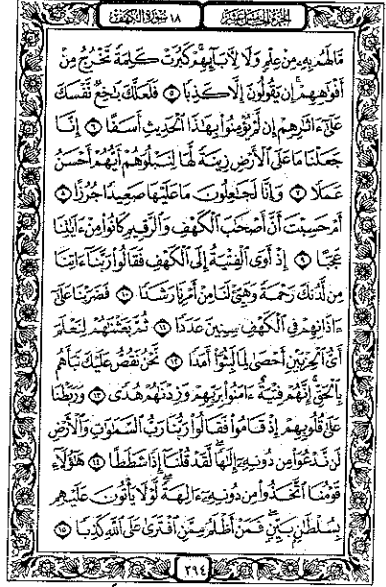 الجزء الخامس عشر ١٨ سورة الكهف
مَّا لَهُم بِهِۦ مِنْ عِلْمٍ وَلَا لِأَبَآئِهِمْ كَبُرَتْ كَلِمَةً تَخْرُجُ مِنْ
أَفْوَٰهِهِمْ إِن يَقُولُونَ إِلَّا كَذِبًا ٥ فَلَعَلَّكَ بَٰخِعٌ نَّفْسَكَ
عَلَىٰٓ ءَاثَٰرِهِمْ إِن لَّمْ يُؤْمِنُوا۟ بِهَٰذَا ٱلْحَدِيثِ أَسَفًا ٦ إِنَّا
جَعَلْنَا مَا عَلَى ٱلْأَرْضِ زِينَةً لَّهَا لِنَبْلُوَهُمْ أَيُّهُمْ أَحْسَنُ
عَمَلًا ٧ وَإِنَّا لَجَٰعِلُونَ مَا عَلَيْهَا صَعِيدًا جُرُزًا ٨
أَمْ حَسِبْتَ أَنَّ أَصْحَٰبَ ٱلْكَهْفِ وَٱلرَّقِيمِ كَانُوا۟ مِنْ ءَايَٰتِنَا
عَجَبًا ٩ إِذْ أَوَى ٱلْفِتْيَةُ إِلَى ٱلْكَهْفِ فَقَالُوا۟ رَبَّنَآ ءَاتِنَا
مِن لَّدُنكَ رَحْمَةً وَهَيِّئْ لَنَا مِنْ أَمْرِنَا رَشَدًا ١٠ فَضَرَبْنَا عَلَىٰٓ
ءَاذَانِهِمْ فِى ٱلْكَهْفِ سِنِينَ عَدَدًا ١١ ثُمَّ بَعَثْنَٰهُمْ لِنَعْلَمَ
أَىُّ ٱلْحِزْبَيْنِ أَحْصَىٰ لِمَا لَبِثُوٓا۟ أَمَدًا ١٢ نَّحْنُ نَقُصُّ عَلَيْكَ نَبَأَهُم
بِٱلْحَقِّ إِنَّهُمْ فِتْيَةٌ ءَامَنُوا۟ بِرَبِّهِمْ وَزِدْنَٰهُمْ هُدًى ١٣ وَرَبَطْنَا
عَلَىٰ قُلُوبِهِمْ إِذْ قَامُوا۟ فَقَالُوا۟ رَبُّنَا رَبُّ ٱلسَّمَٰوَٰتِ وَٱلْأَرْضِ
لَن نَّدْعُوَا۟ مِن دُونِهِۦٓ إِلَٰهًا لَّقَدْ قُلْنَآ إِذًا شَطَطًا ١٤ هَٰٓؤُلَآءِ
قَوْمُنَا ٱتَّخَذُوا۟ مِن دُونِهِۦٓ ءَالِهَةً لَّوْلَا يَأْتُونَ عَلَيْهِم
بِسُلْطَٰنٍۭ بَيِّنٍ فَمَنْ أَظْلَمُ مِمَّنِ ٱفْتَرَىٰ عَلَى ٱللَّهِ كَذِبًا ١٥
٢٩٤